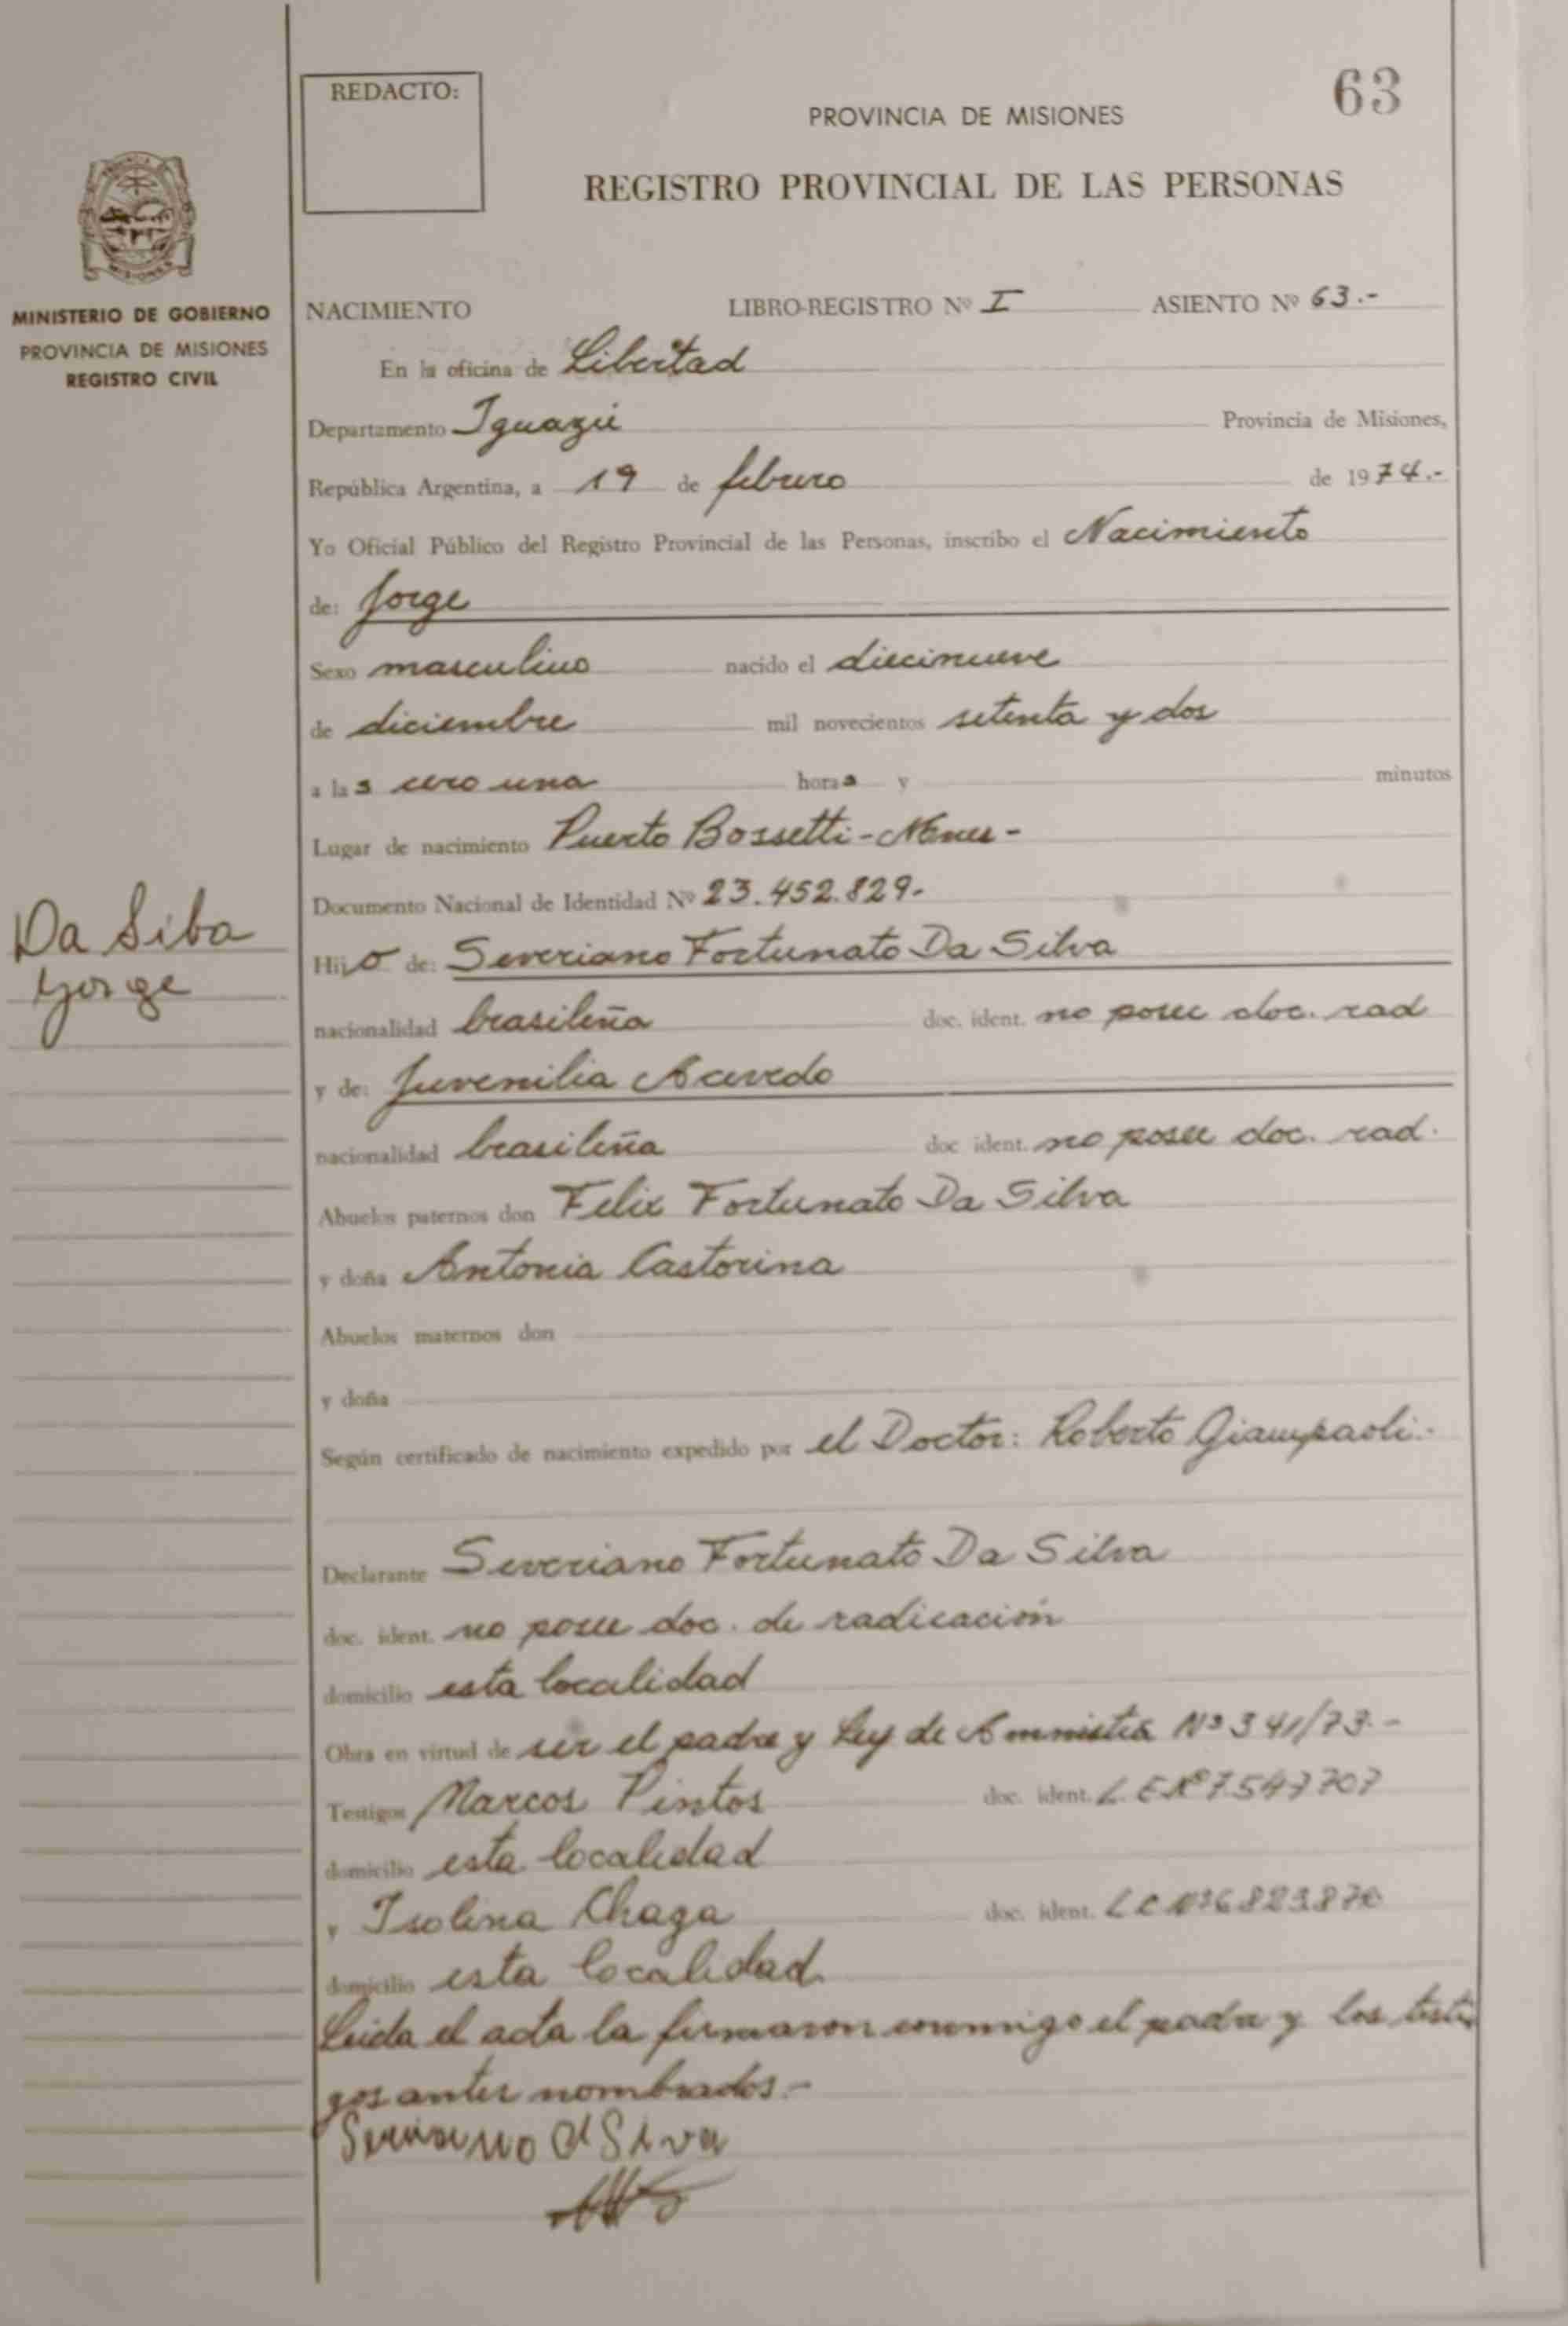 REDACTO:
63
PROVINCIA DE MISIONES
REGISTRO PROVINCIAL DE LAS PERSONAS
MINISTERIO DE GOBIERNO
PROVINCIA DE MISIONES
REGISTRO CIVIL
NACIMIENTO LIBRO-REGISTRO Nº I ASIENTO Nº 63.-
En la oficina de Libertad
Departamento Iguazú Provincia de Misiones,
República Argentina, a 19 de febrero de 1974.-
Yo Oficial Público del Registro Provincial de las Personas, inscribo el Nacimiento
de: Jorge
Sexo masculino nacido el diecinueve
de diciembre mil novecientos setenta y dos
a las cero una horas y minutos
Lugar de nacimiento Puerto Bossetti-
Documento Nacional de Identidad Nº 23.452.829-
Da Silva
Jorge
Hijo de: Severiano Fortunato Da Silva
nacionalidad brasileña doc. ident. no posee doc. rad
y de: Juvenilia Acevedo
nacionalidad brasileña doc ident. no posee doc. rad.
Abuelos paternos don Felix Fortunato Da Silva
y doña Antonia Castorina
Abuelos maternos don
y doña
Según certificado de nacimiento expedido por el Doctor: Roberto Giampaoli.-
Declarante Severiano Fortunato Da Silva
doc. ident. no posee doc. de radicación
domicilio esta localidad
Obra en virtud de ser el padre y Ley de Amnistía Nº 341/73.-
Testigos Marcos Pintos doc. ident. L.E Nº 7.547707
domicilio esta localidad
y Isolina Chaga doc. ident. L C Nº
domicilio esta localidad
Leida el acta la firmaron conmigo el padre y los testi
gos antes nombrados.-